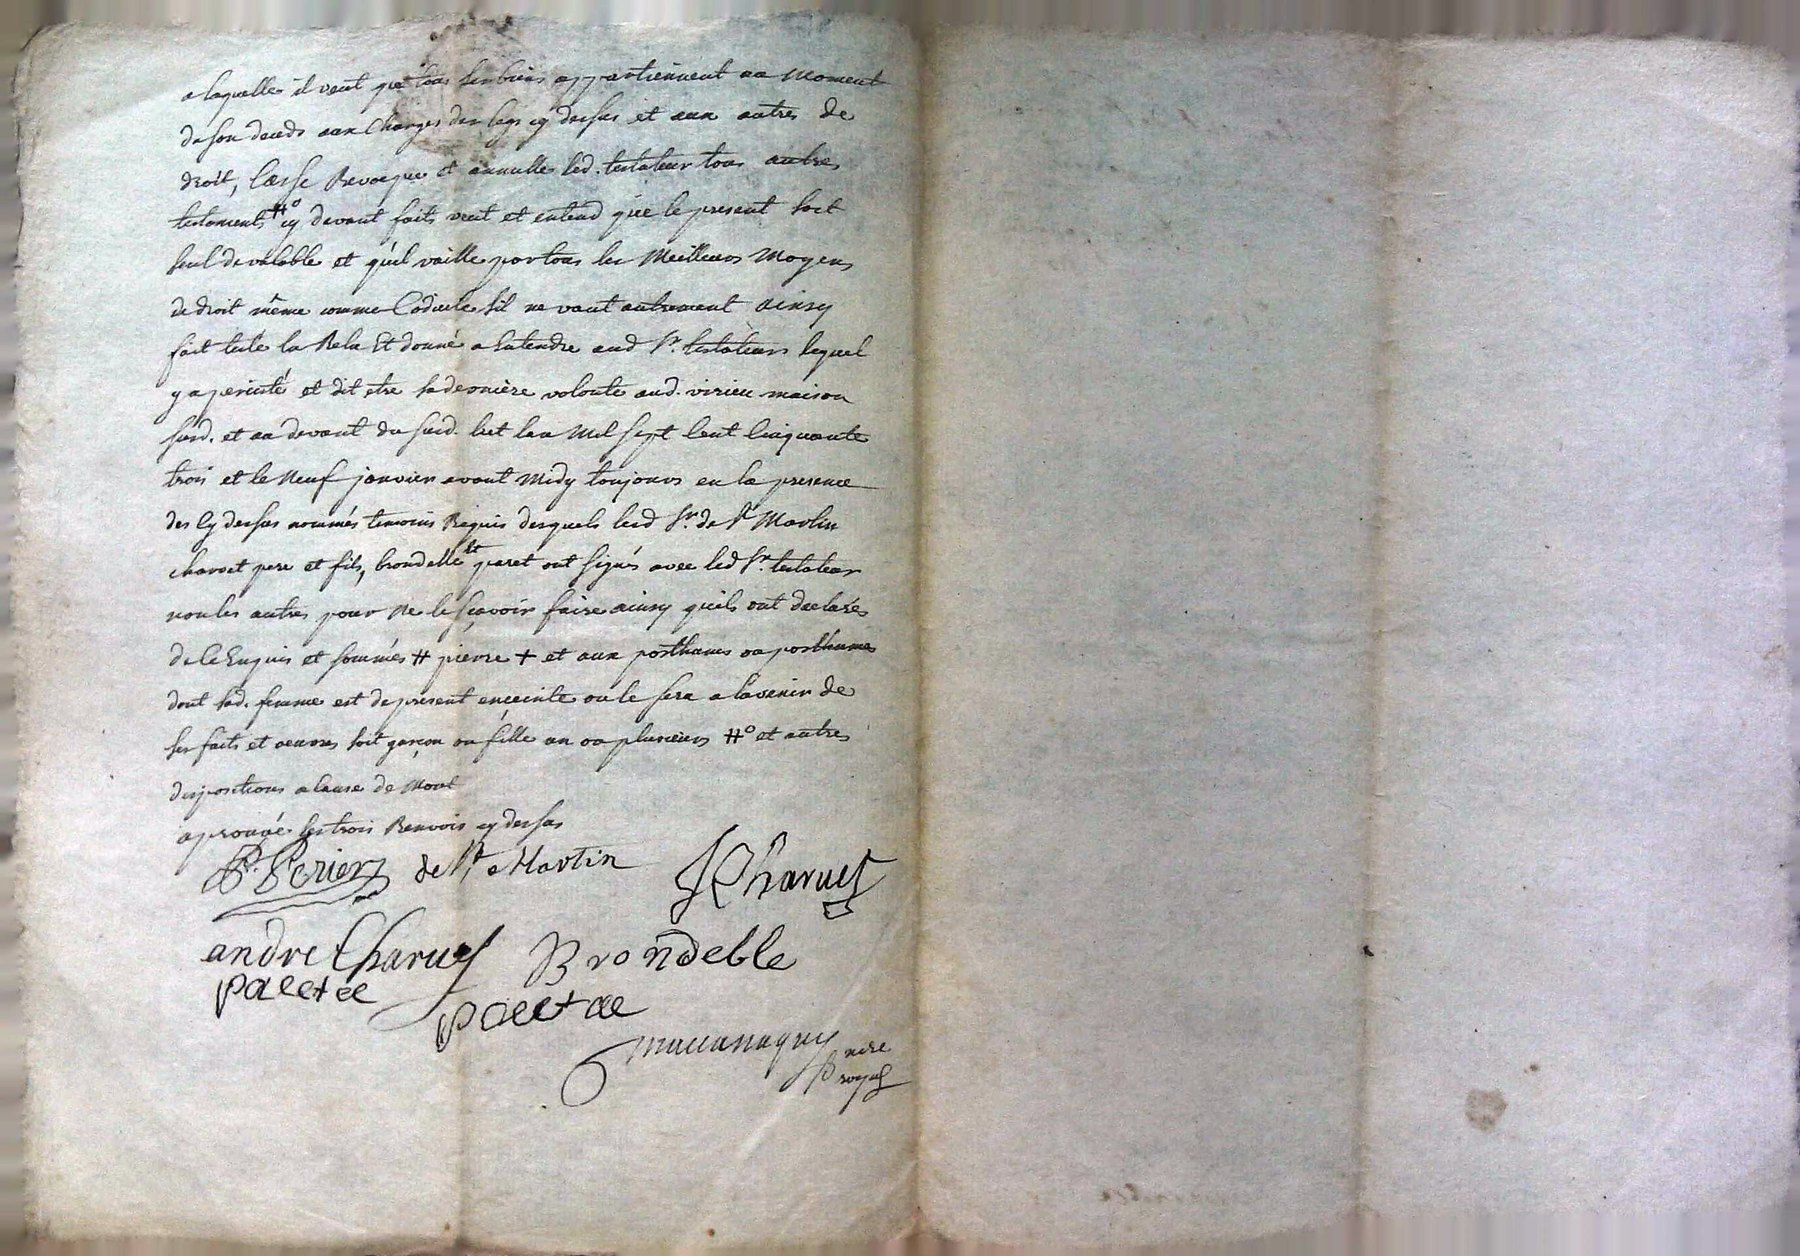 a laquelle il veut que tous ses biens appartiennent au moment
de son deceds aux Charges des legs cy dessus et aux autres de
droit, Casse Revocque et annulle led. testateur tous autres
testaments #° cy devant faits veut et entend que le present soit
seul de valable et qu'il vaille par tous les Meilleurs Moyens
de droit même comme Codicile sil ne vaut autrement ainsy
fait testé la Relu Et donné a Entendre aud Sr. testateur lequel
y a persisté et dit etre sa derniere volonte aud. virieu maison
susd. et au devant du susd. lict lan Mil sept Cent Cinquante
trois et le Neuf janvier avant Midy toujours en la presence
des Cy dessus nommés temoins Requis desquels lesd Sr. de St Martin
charvet pere et fils, brondelle et paret ont signés avec led Sr. testateur
non les autres pour ne le sçavoir faire ainsy quils ont declarés
de ce Enquis et sommés # pierre + et aux posthumes ou posthumes
dont sad. femme est de present enceinte ou le sera a lavenir de
ses faits et oeuvres soit garçon ou fille un ou plusieurs #° et autres
dispositions a Cause de Mort
aprouvé les trois Renvois cy dessus
P. Perier de St Martin J Charvet
andre Charvet Brondelle